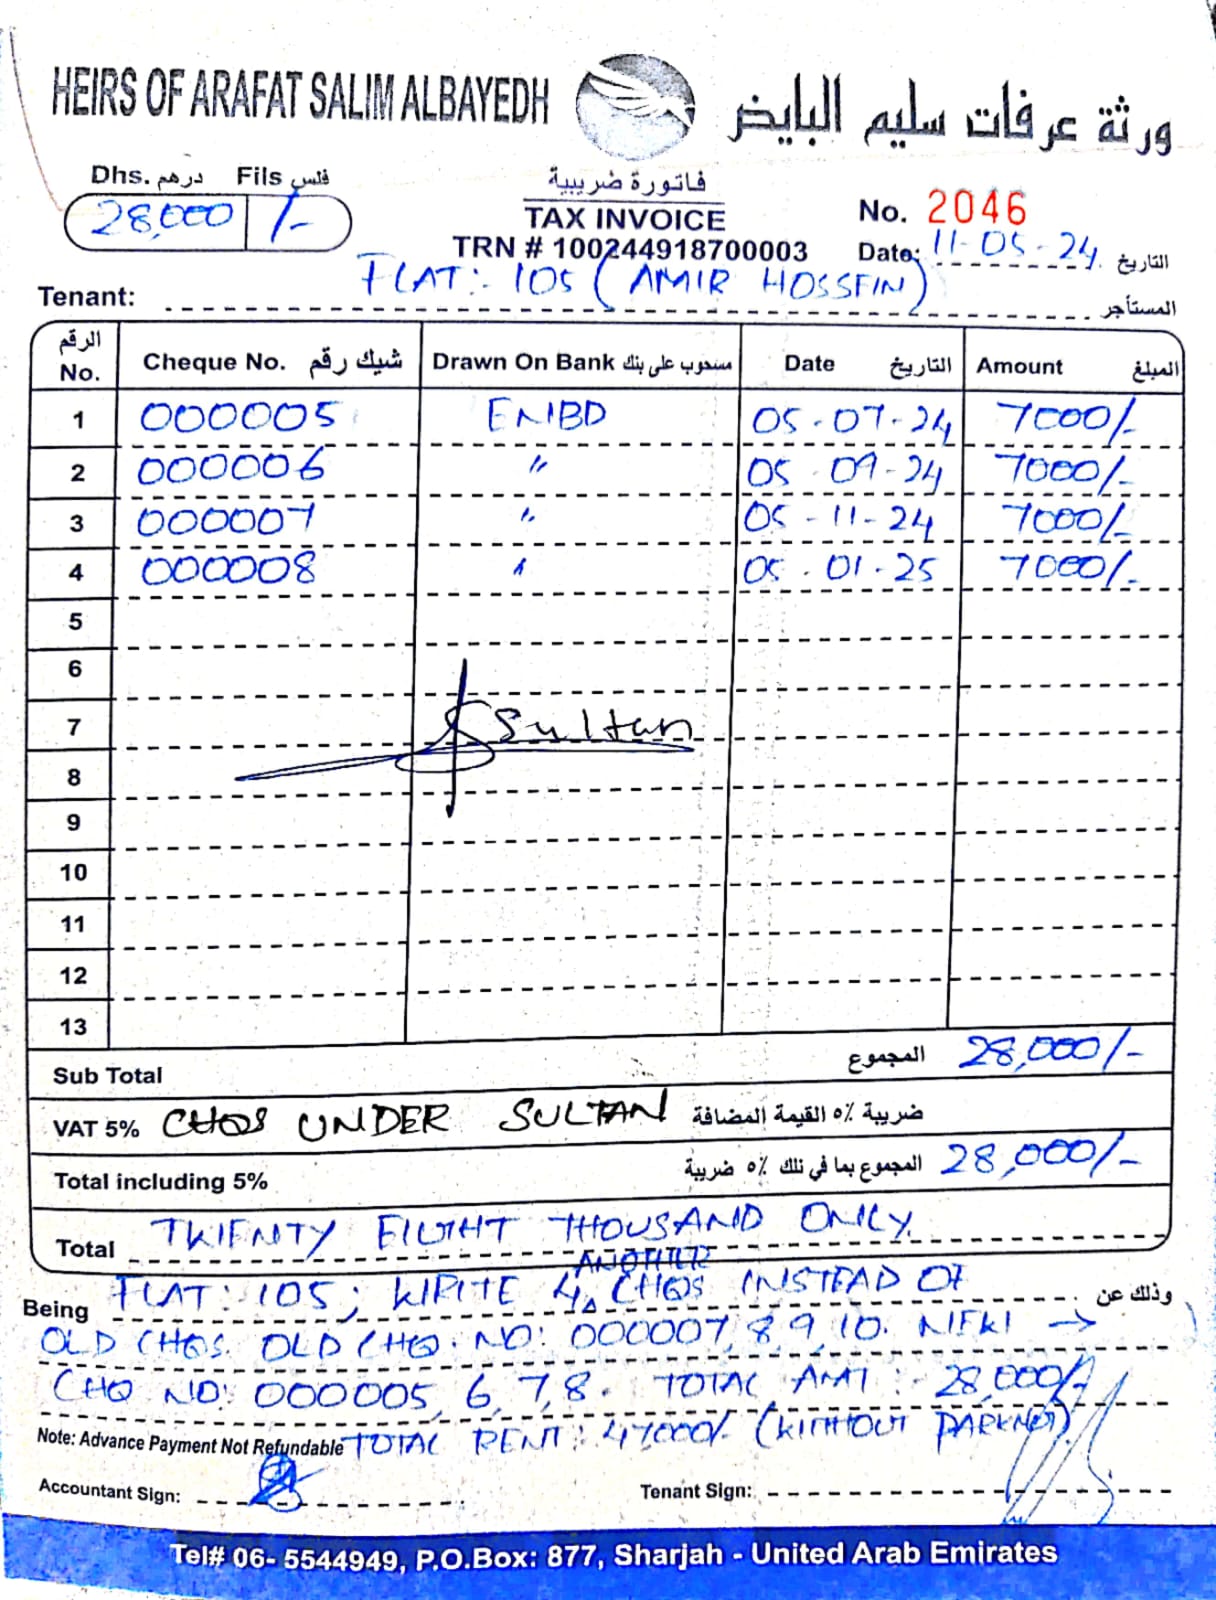 HEIRS OF ARAFAT SALIM ALBAYEDH ورثة عرفات سليم البايض
Dhs. درهم Fils فلس
28,000 /-
فاتورة ضريبية
TAX INVOICE
TRN # 100244918700003
No. 2046
Date: 11-05-24 التاريخ
Tenant: FLAT:- 105 (AMIR HOSSEIN) المستأجر
الرقم No. Cheque No. شيك رقم Drawn On Bank مسحوب على بنك Date التاريخ Amount المبلغ
1 000005 ENBD 05-07-24 7000/-
2 000006 〃 05-09-24 7000/-
3 000007 〃 05-11-24 7000/-
4 000008 〃 05-01-25 7000/-
5
6
7 Sultan
8
9
10
11
12
13
Sub Total المجموع 28,000/-
VAT 5% CHQS UNDER SULTAN ضريبة ٥٪ القيمة المضافة
Total including 5% المجموع بما في ذلك ٥٪ ضريبة 28,000/-
Total TWENTY EIGHT THOUSAND ONLY.
ANOTHER
Being FLAT: 105; WRITE 4 CHQS INSTEAD OF وذلك عن
OLD CHQS. OLD CHQ. NO: 000007,8,9,10. NEW →
CHQ NO: 000005, 6, 7, 8. TOTAL AMT :- 28,000/-
Note: Advance Payment Not Refundable TOTAL RENT: 47000/- (WITHOUT PARKING)
Accountant Sign: Tenant Sign:
Tel# 06- 5544949, P.O.Box: 877, Sharjah - United Arab Emirates